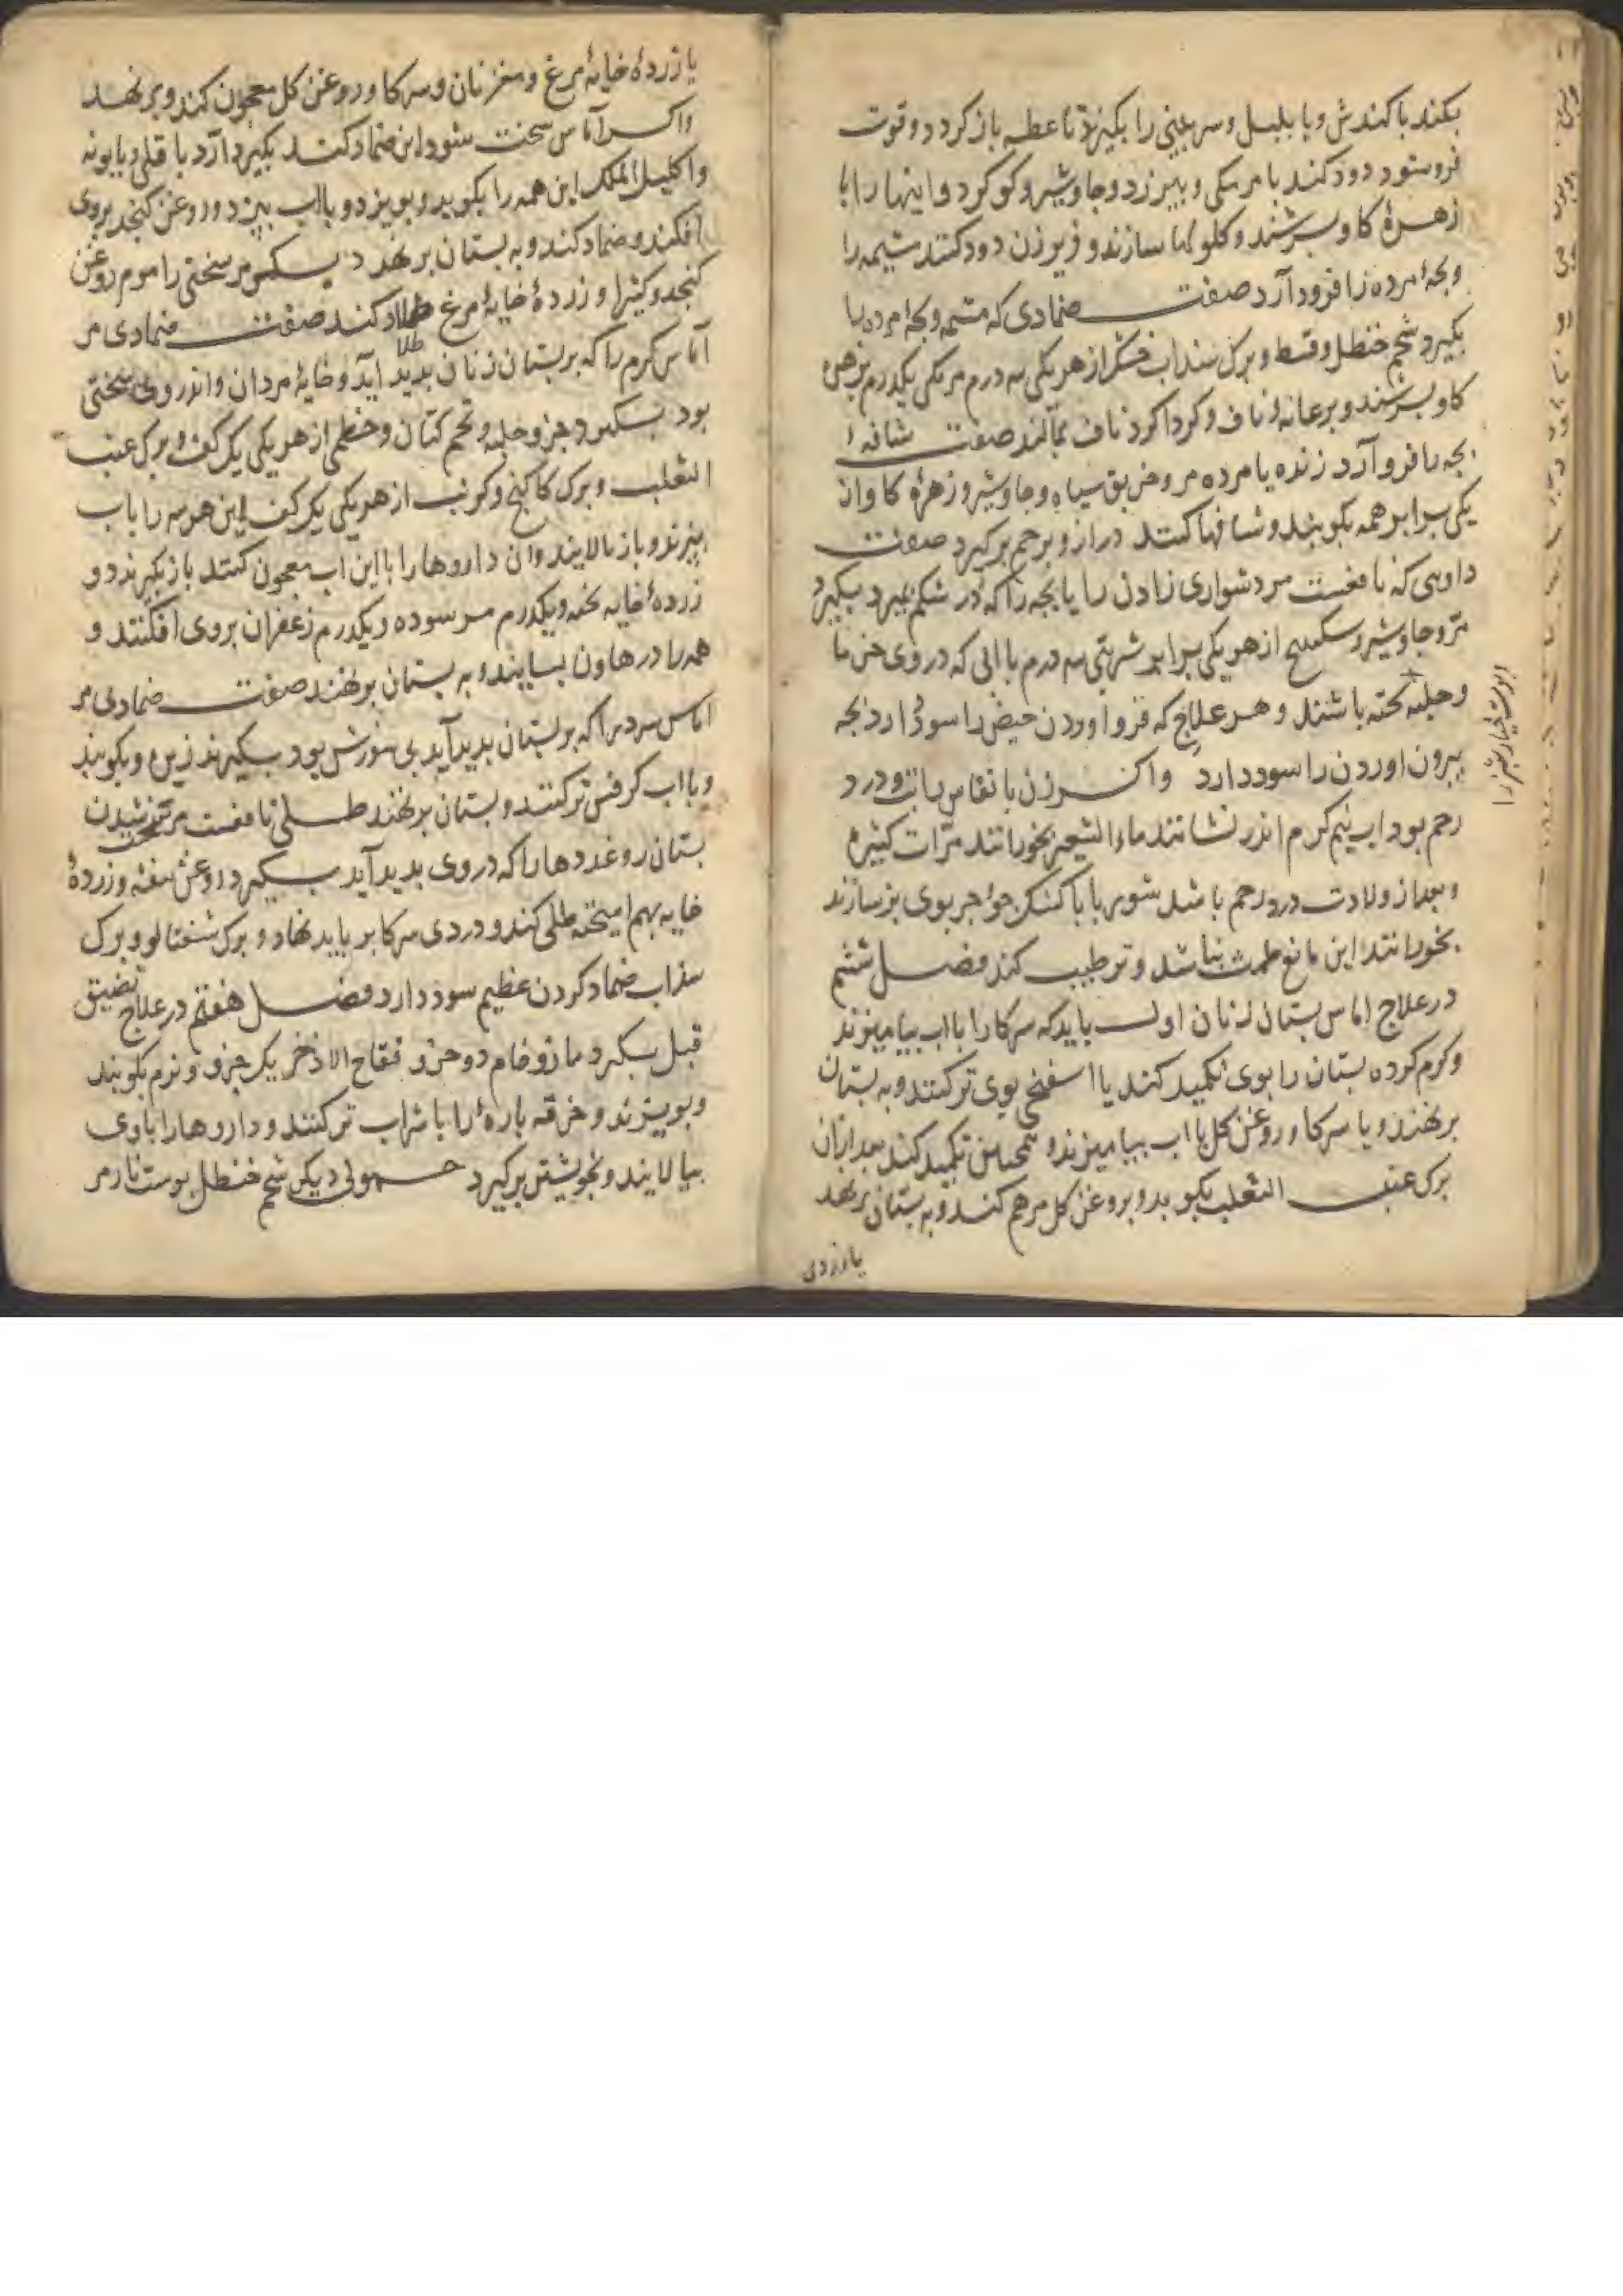 بکند با کندش و با بلبل و سر بینی را بکیرند تا عطسه باز کردد و قوت
فرو شود دود کند با مر مکی و بیرزد و جاوشیر و کوکرد و اینها را با
زهرهٔ کاو بسرشند و کلولها سازند و زیر زن دود کنند مشیمه را
و بجهٔ مرده را فرود آرد صفت ضمادی که مشیمه و بجهٔ مرده را
بکیرد شحم حنظل و قسط و برک سنداب خشک از هر یکی سه درم مر مکی یکدرم بزهرهٔ
کاو بسرشند و بر عانه و ناف و کرداکرد ناف بمالند صفت شافه ا
بجه را فرو آرد زنده یا مرده مر و خربق سیاه و جاوشیر و زهرهٔ کاو از
یکی برابر همه بکوبند و شافها کنند دراز و برحم برکیرد صفت
داروی که نافعست مر دشواری زادن را یا بجه را که در شکم بمیرد بکیرد
مر و جاوشیر و از هر یکی برابر شربتی سه درم با ابی که در وی خرما
و حلبه بخته باشند و هر علاج که فرو آوردن حیض را سود دارد بجه
بیرون اوردن را سود دارد واکر زن با نفاس را تب و درد
رحم بود اب نیم کرم اندر نشانند ماء الشعیر بخورانند مرات کثیره
و بعد از ولادت درد رحم باشد شوربا با کشک جو اجر بوی بز سازند
بخورانند این مانع طمث نباشد و ترطیب کند فصل ششم
در علاج اماس بستان زنان اول باید که سرکا را با اب بیامیزند
و کرم کرده بستان را بوی تکمید کنند یا اسفنج بوی تر کنند و به بستان
بر نهند و یا سرکا و روغن کل با اب بیامیزند و همچنین تکمید کند بعد ازان
برک عنب الثعلب بکوبد و بروغن کل مرهم کند و به بستان بر نهد
یا زردی
یا زردهٔ خایهٔ مرغ و مغز نان و سرکا و روغن کل معجون کند و بر نهد
واکر آماس سخت شود این ضماد کنند بکیرد آرد باقلی و بابونه
و اکلیل الملک این همه را بکوبد و ببیزد و بااب ببزد و روغن کنجد بروی
افکند و ضماد کند و به بستان بر نهد دیکر مر سختی را موم روغن
کنجد و کثیرا و زردهٔ خایهٔ مرغ طلا کند صفت ضمادی مر
طلا
آماس کرم را که بر بستان زنان بدید اید و خایهٔ مردان و اندر وی سختی
بود بکیرد جو و حلبه و تخم کتان و خطمی از هر یکی یک کف و برک عنب
الثعلب و برک کاکنج و کرنب از هر یکی یک کف این هر سه را باب
ببزند و باز بالایند وان داروها را بااین اب معجون کنند باز بکیرند دو
زردهٔ خایه بخته و یکدرم مر سوده و یکدرم زعفران بروی افکنند و
همه را در هاون بسایند و به بستان بر نهند صفت ضمادی مر
اماس سرد را که بر بستان بدید آید بی سوزش بود بکیرند زیره و بکوبند
و بااب کرفس تر کنند و بستان بر نهند طلی نافعست مر سخت شدن
بستان را و غددها را که در وی بدید آید بکیرد روغن بنفشه و زردهٔ
خایه بهم امیخته طلی کند و دردی سرکا بر باید نهاد و برک شفتالو و برک
سذاب ضماد کردن عظیم سود دارد فصل هفتم در علاج تضییق
قبل بکیرد مازو خام دو جزو فقاح الاذخر یک جزو و نرم بکوبند
و ببیزند و خرقه بارهٔ را با شراب تر کنند و داروها را باوی
بیالایند و بخویشتن برکیرد حمولی دیکر شحم حنظل بوست نار مر